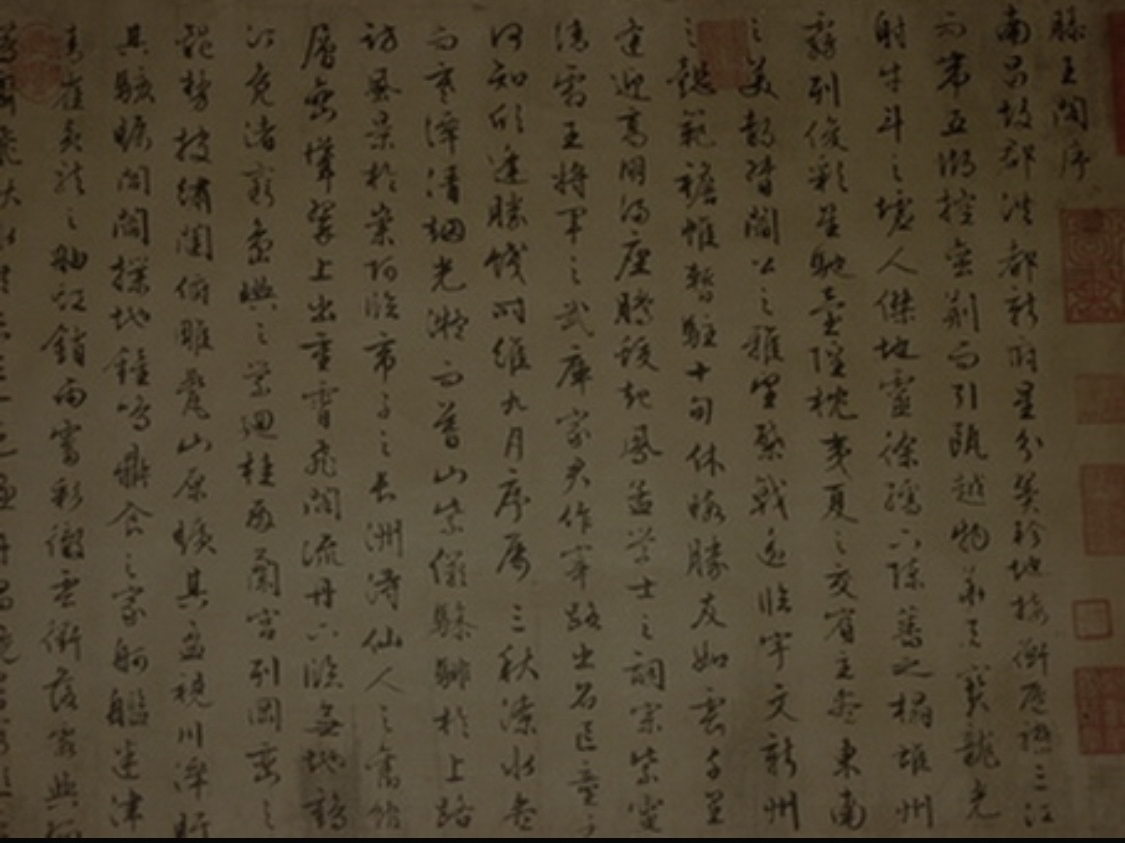 滕王閣序
南昌故郡洪都新府星分翼軫地接衡廬襟三江
而帶五湖控蠻荊而引甌越物華天寶龍光
射牛斗之墟人傑地靈徐孺下陳蕃之榻雄州
霧列俊彩星馳臺隍枕夷夏之交賓主盡東南
之美都督閻公之雅望棨戟遙臨宇文新州
之懿範襜帷暫駐十旬休暇勝友如雲千里
逢迎高朋滿座騰蛟起鳳孟學士之詞宗紫電
清霜王將軍之武庫家君作宰路出名區童子
何知躬逢勝餞時維九月序屬三秋潦水盡
而寒潭清烟光凝而暮山紫儼驂騑於上路
訪風景於崇阿臨帝子之長洲得仙人之舊館
層巒聳翠上出重霄飛閣流丹下臨無地鶴
汀鳧渚窮島嶼之縈迴桂殿蘭宮列岡巒之
體勢披繡闥俯雕甍山原曠其盈視川澤盱
其駭矚閭閻撲地鐘鳴鼎食之家舸艦迷津
青雀黃龍之舳虹銷雨霽彩徹雲衢落霞與孤